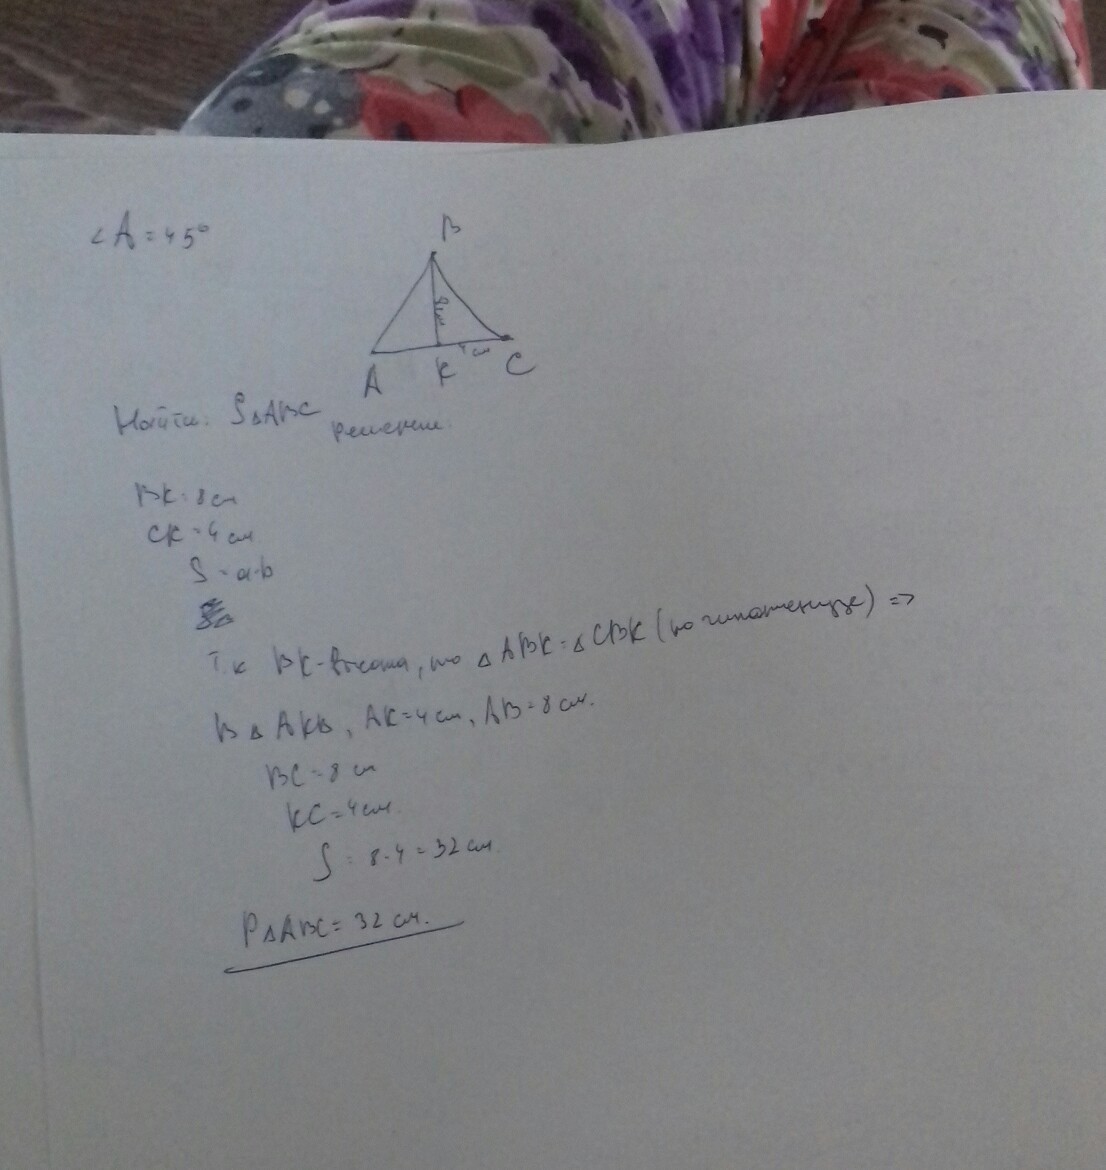 ∠A=45°
B
8см
4 см
A K C
Найти: S△ABC
решение.
BK=8см
CK=4 см
S=a·b
Т.к BK-высота, то △ABK=△CBK (по гипотенузе) =>
В △ AKB, AK=4 см, AB=8 см.
BC=8 см
KC=4см.
S=8·4=32 см.
P△ABC=32 см.